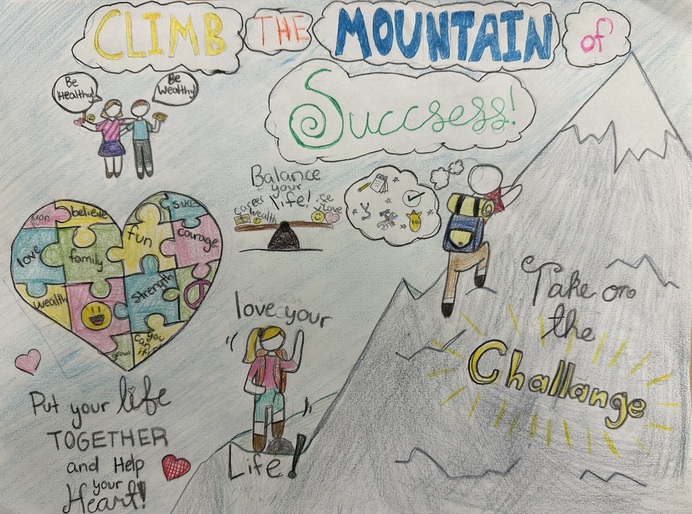 CLIMB THE MOUNTAIN of
Succsess!
Be
Healthy!
Be
Wealthy!
Balance
your
life!
career
wealth
love
believe
succ
love
family
fun
courage
wealth
strength
grow
you
can
do
it!
love your
Life!
Take on
the
Challange
Put your life
TOGETHER
and Help
your
Heart!